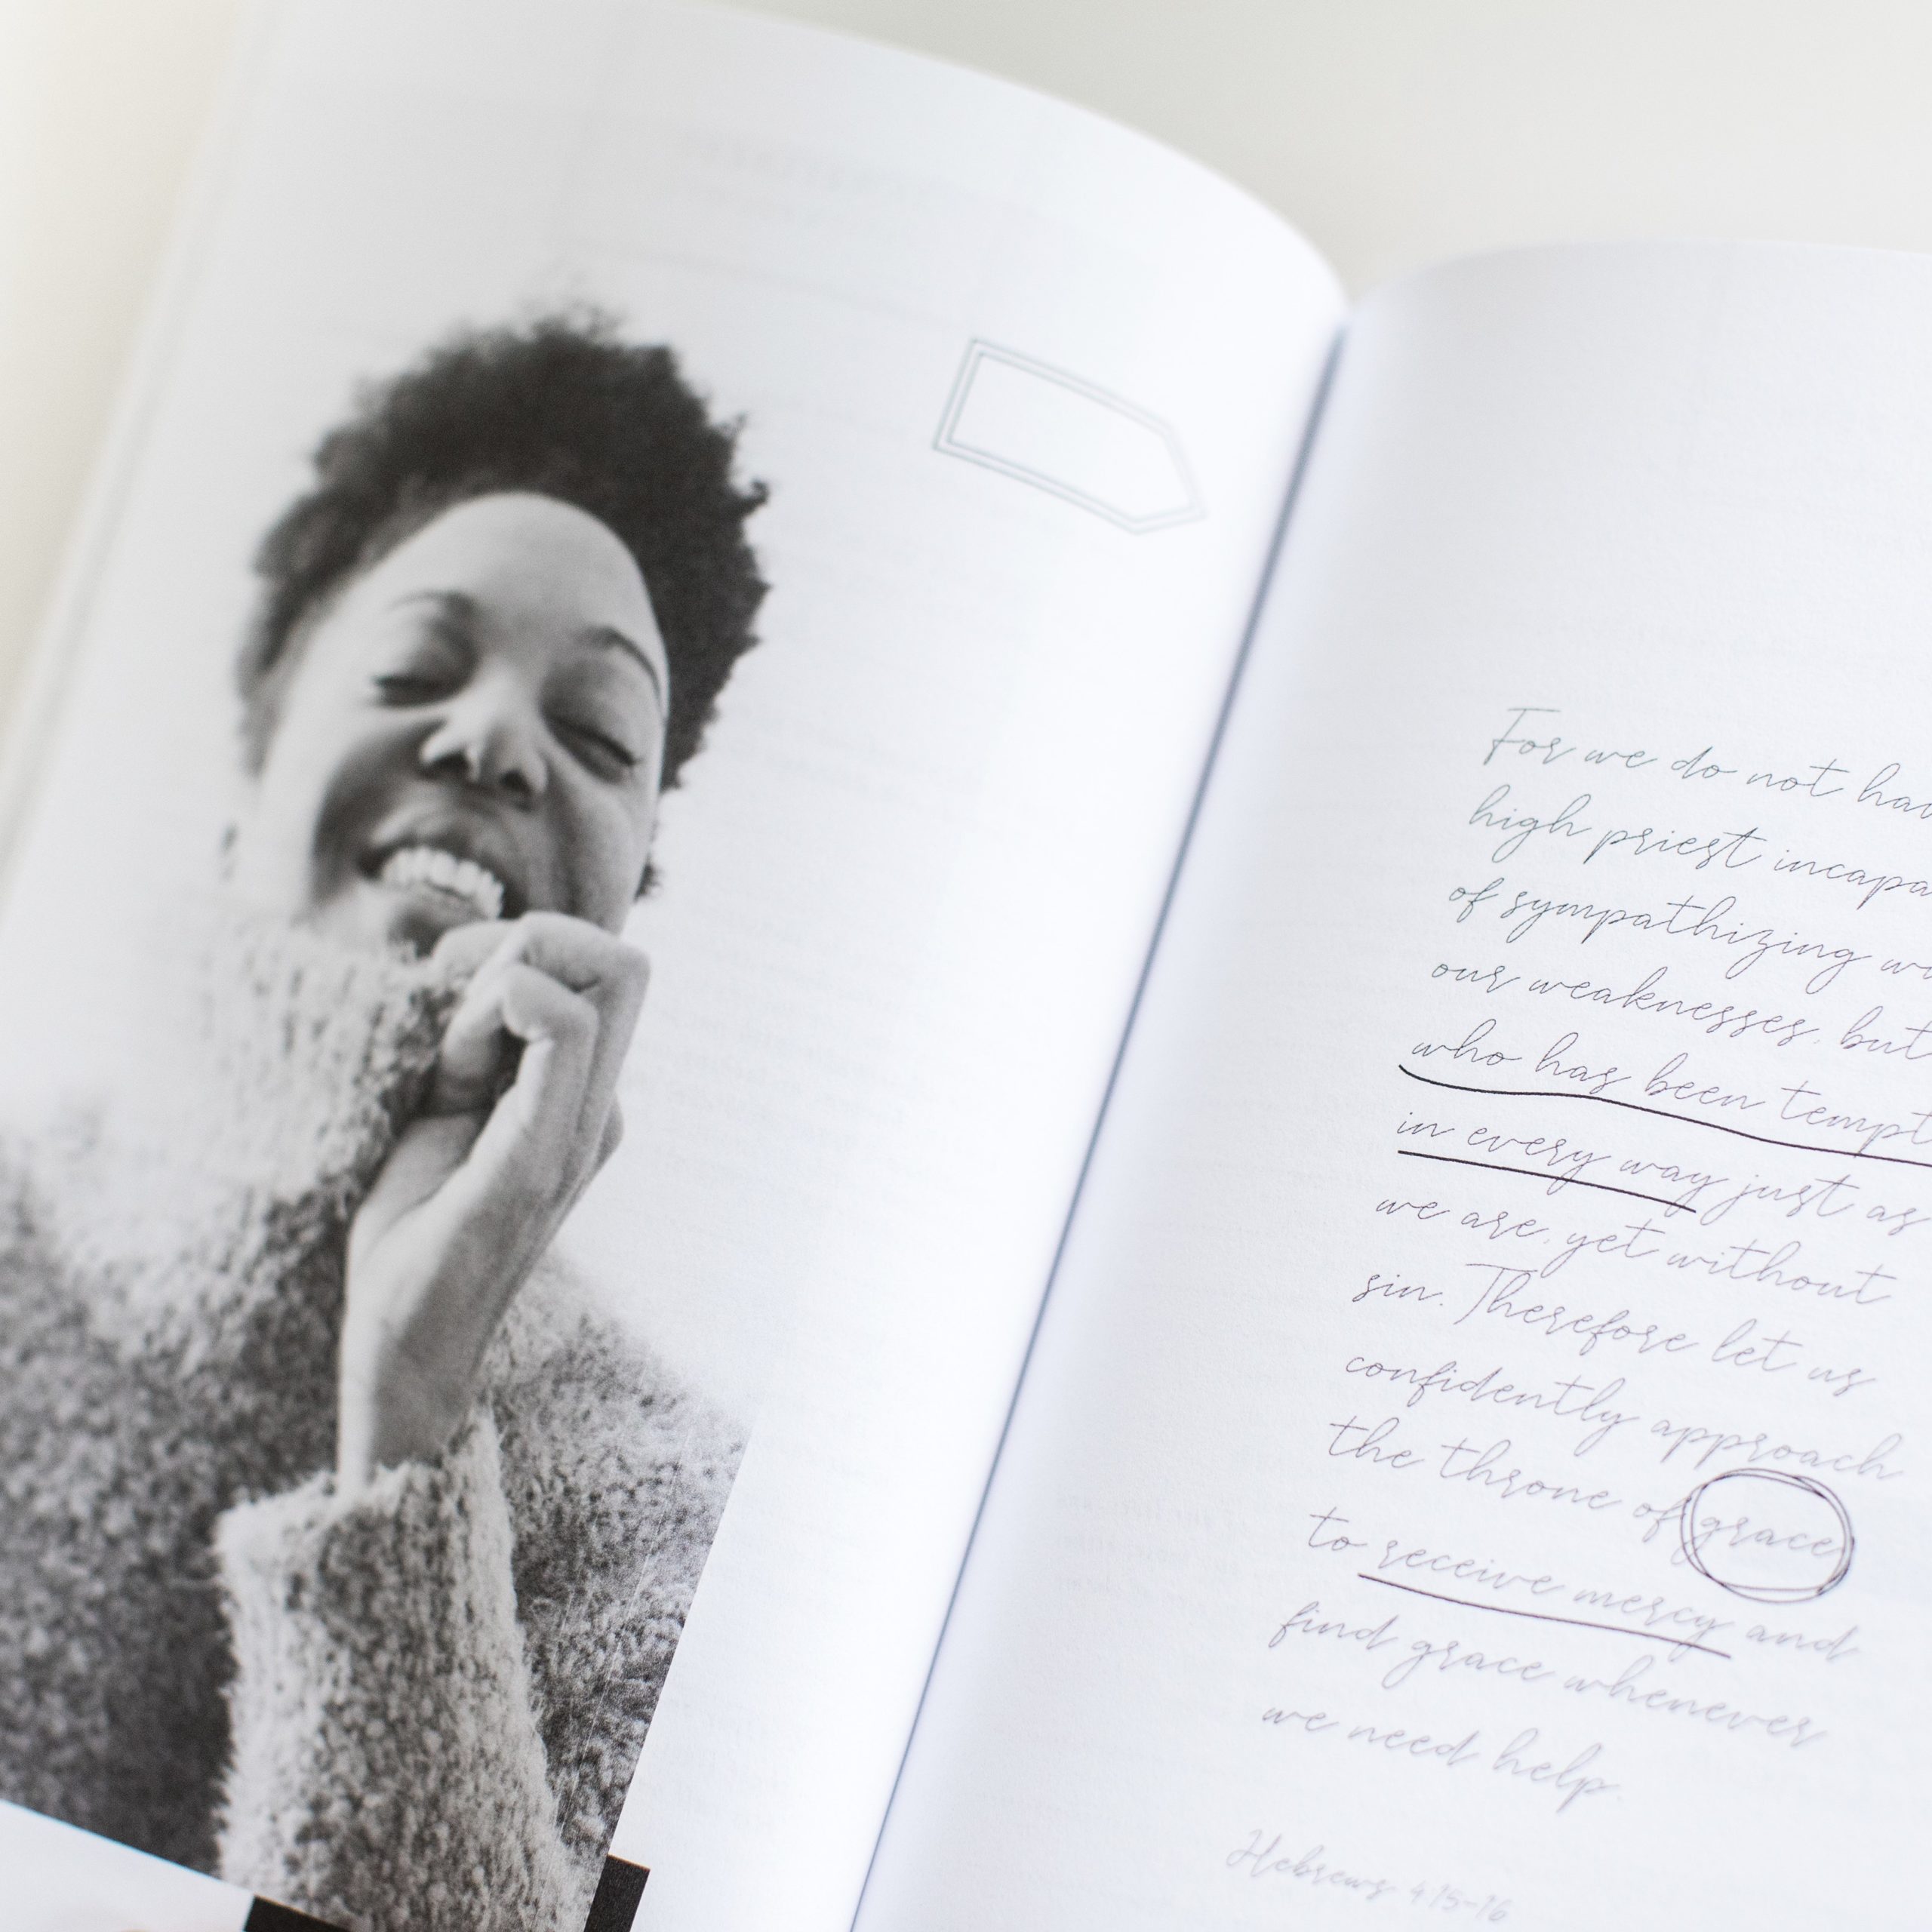 For we do not
high priest
of sympathizing
our weaknesses, but
who has been
in every way just as
we are, yet without
sin. Therefore let us
confidently approach
the throne of grace
to receive mercy and
find grace whenever
we need help.
Hebrews 4:15-16